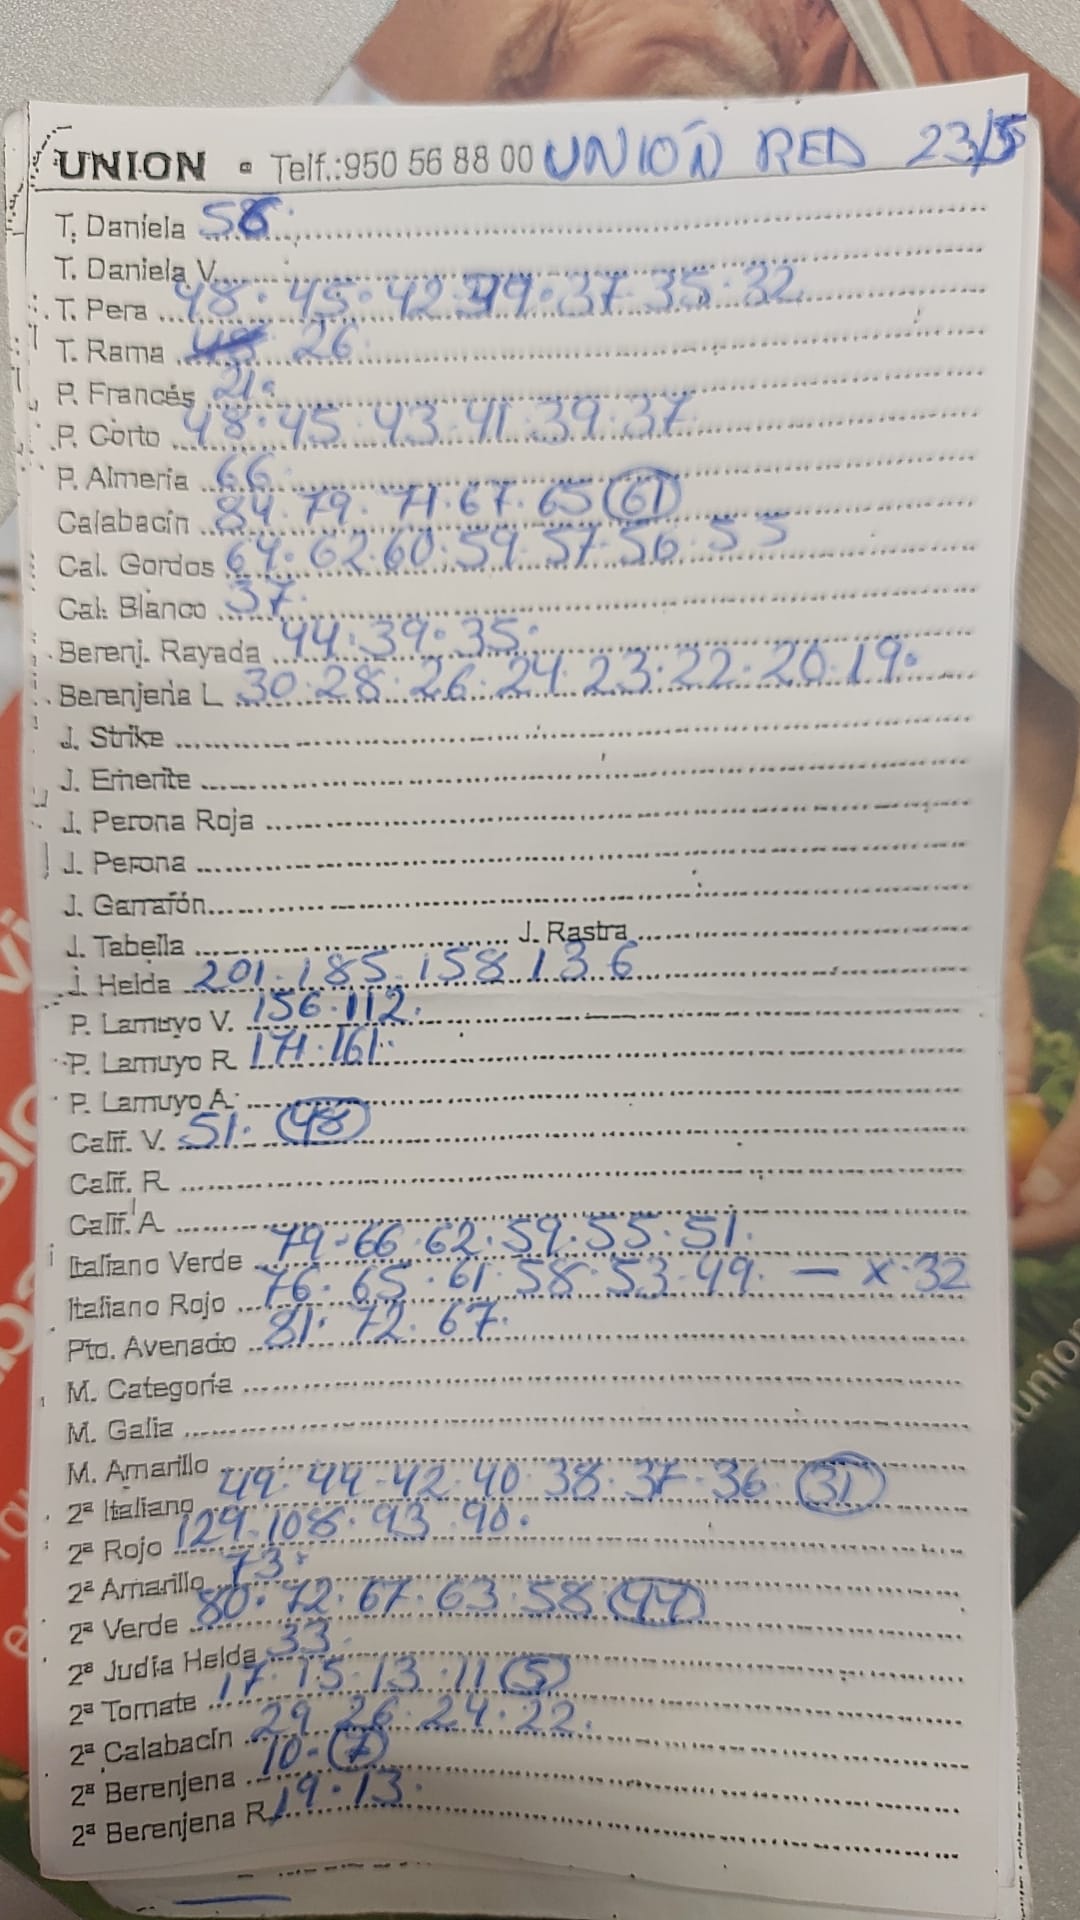 UNION - Telf.:950 56 88 00 UNIÓN RED 23/5
T. Daniela 58.
T. Daniela V.
T. Pera 48. 45. 42. 39. 37. 35. 32
T. Rama 26
P. Francés 21.
P. Corto 48. 45. 43. 41. 39. 37
P. Almeria 66
Calabacín 84. 79. 71. 67. 65 (61)
Cal. Gordos 64. 62. 60. 59. 57. 56. 55
Cal. Blanco 37.
Berenj. Rayada 44. 39. 35.
Berenjena L 30. 28. 26. 24. 23. 22. 20. 19.
J. Strike
J. Emerite
J. Perona Roja
J. Perona
J. Garrafón
J. Tabella J. Rastra
J. Helda 201. 185. 158 136
P. Lamuyo V. 156. 112.
P. Lamuyo R. 171. 161.
P. Lamuyo A.
Calif. V. 51. (48)
Calif. R
Calif. A
Italiano Verde 79. 66. 62. 59. 55. 51.
Italiano Rojo 76. 65. 61. 58. 53. 49. — x. 32
Pto. Avenado 81. 72. 67.
M. Categoria
M. Galia
M. Amarillo
2ª Italiano 49. 44. 42. 40. 38. 37. 36 (31)
2ª Rojo 129. 108. 93. 90.
2ª Amarillo 73.
2ª Verde 80. 72. 67. 63. 58 (44)
2ª Judía Helda 33.
2ª Tomate 17. 15. 13. 11 (5)
2ª Calabacín 29 26. 24. 22.
2ª Berenjena 10. (7)
2ª Berenjena R. 19. 13.